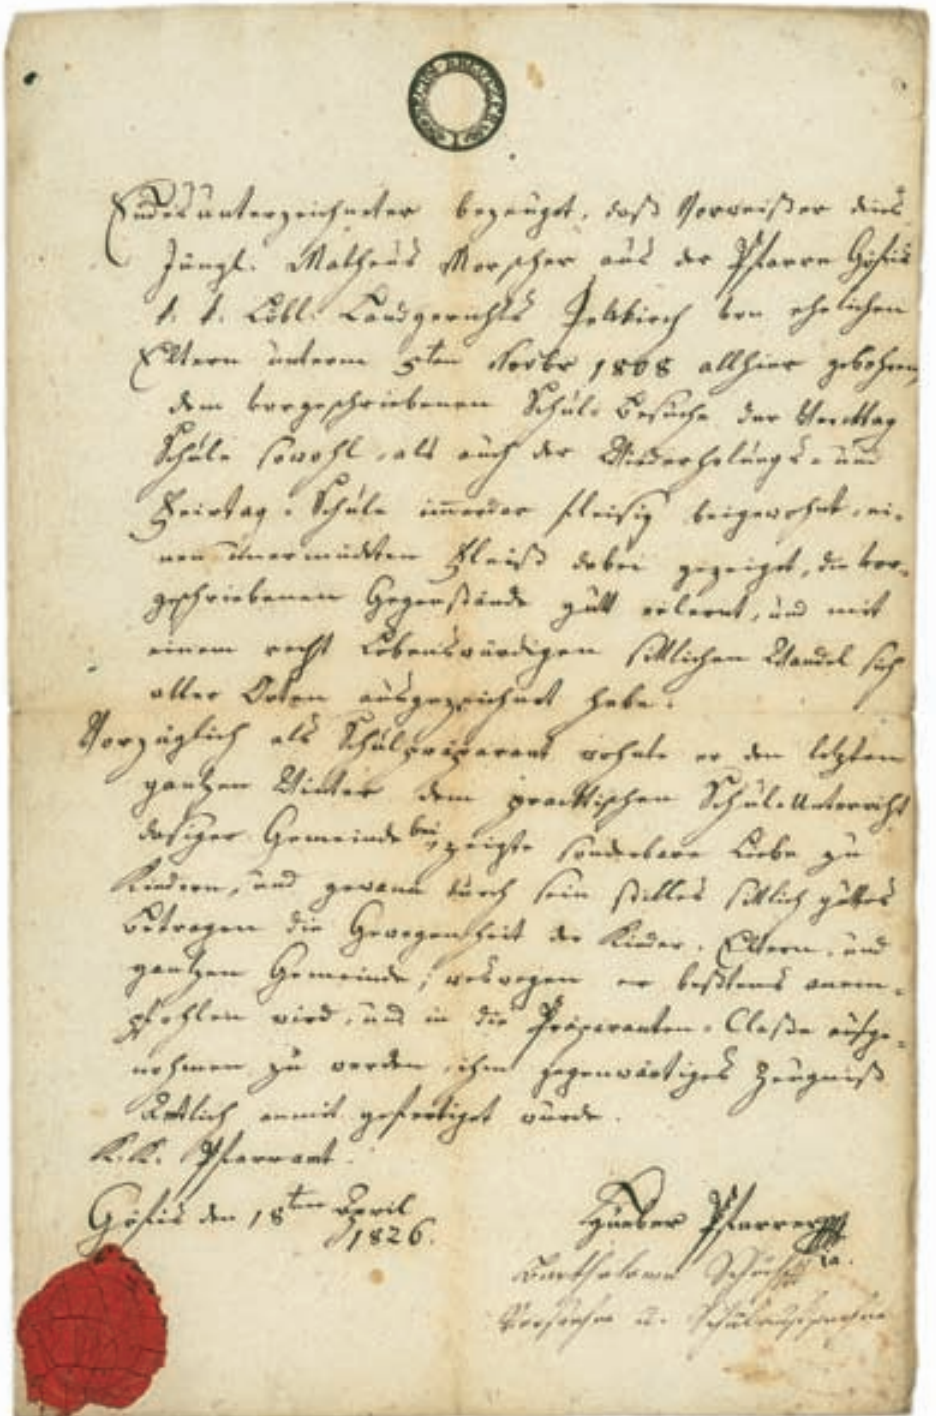 Endesunterzeichneter bezeuget, daß Vorweißer dies
Jüngl. Matheus Morscher aus der Pfarre Göfis
k. k. Löbl. Landgerichts Feldkirch von ehelichen
Eltern unterm 5ten Novbr 1808 allhier gebohren,
dem vorgeschriebenen Schul-Besuche der Wercktag
Schule sowohl, als auch der Wiederholungs- und
Feirtag-Schule immerdar fleisig beigewohnt, ei-
nen unermüdeten Fleiß dabei gezeiget, die vor-
geschriebenen Gegenstände gutt erlernt, und mit
einem recht Lobenswürdigen sittlichen Wandel sich
aller Orten ausgezeichnet habe.
Vorzüglich als Schulpräparant wohnte er den letzten
gantzen Winter dem practischen Schul-Unterricht
dasiger Gemeinde bei, zeigte sonderbare Liebe zu
Kindern, und gewann durch sein stilles sittlich guttes
Betragen die Gewogenheit der Kinder, Eltern, und
gantzen Gemeinde; weswegen er beßtens anem-
pfohlen wird, und in die Präparanten-Claße aufge-
nohmen zu werden, ihm gegenwärtiges Zeugniß
Amtlich anmit gefertiget wurde.
K. K. Pfarramt.
Göfis den 18ten April
1826.
Hueber Pfarrer
Bartholome
Vorsteher u. Schulaufseher